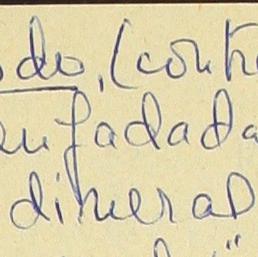 odo, (contr
enfadada
dineral